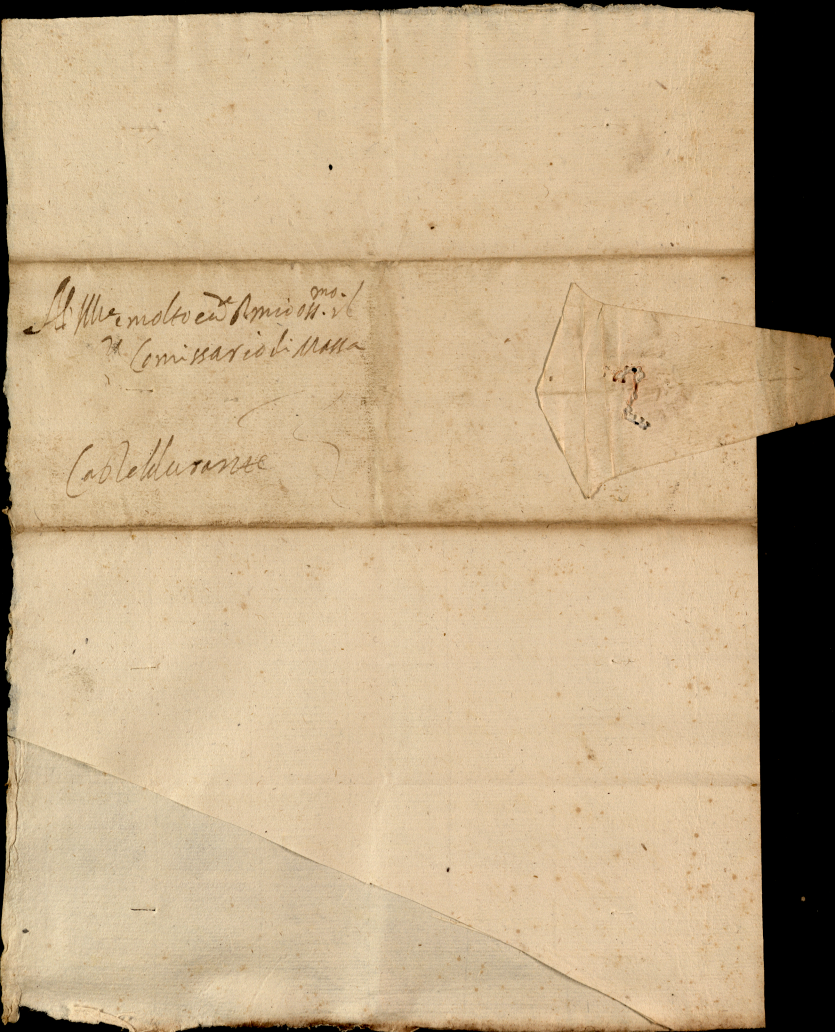 All Ill.re e molto ecc.te sig.r mio oss.mo il
Comissario di Massa
Casteldurante